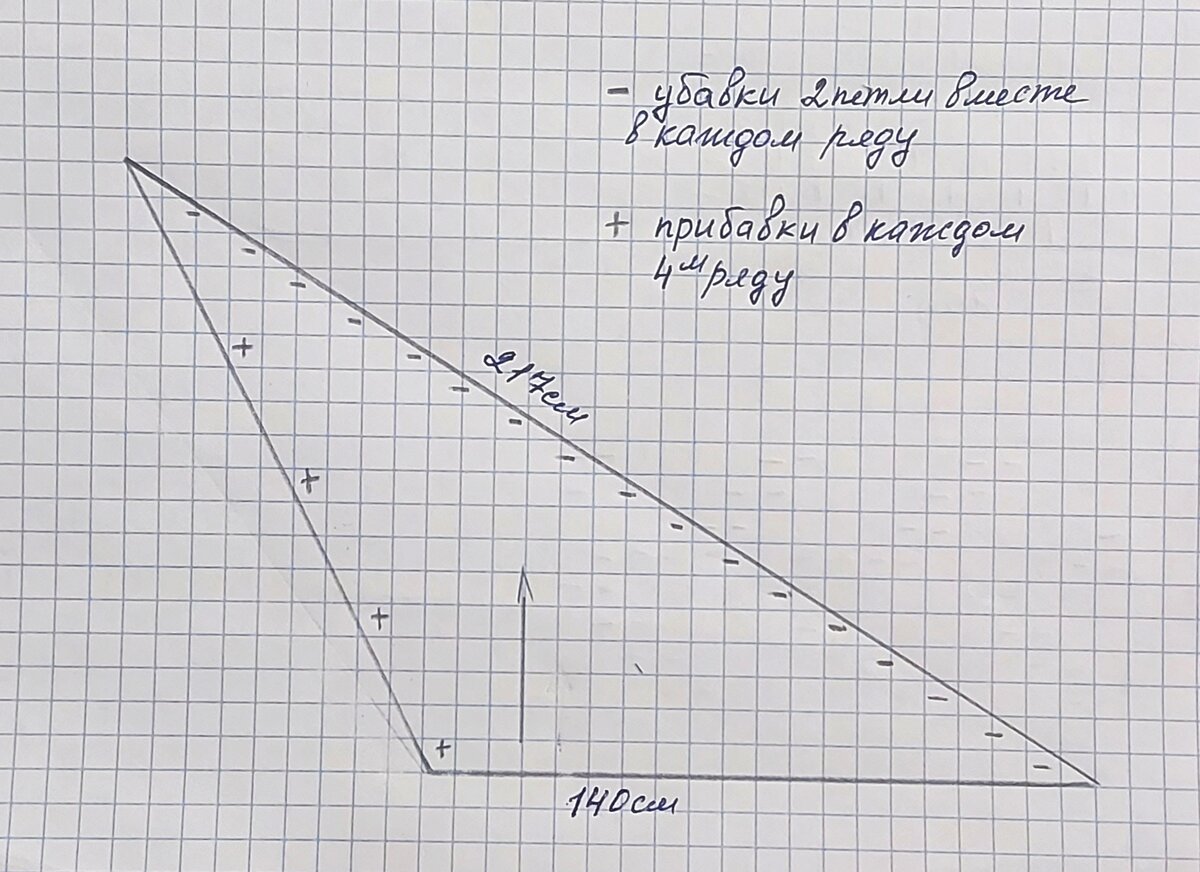 - убавки 2 петли вместе
в каждом ряду
+ прибавки в каждом
4м ряду
217см
140см